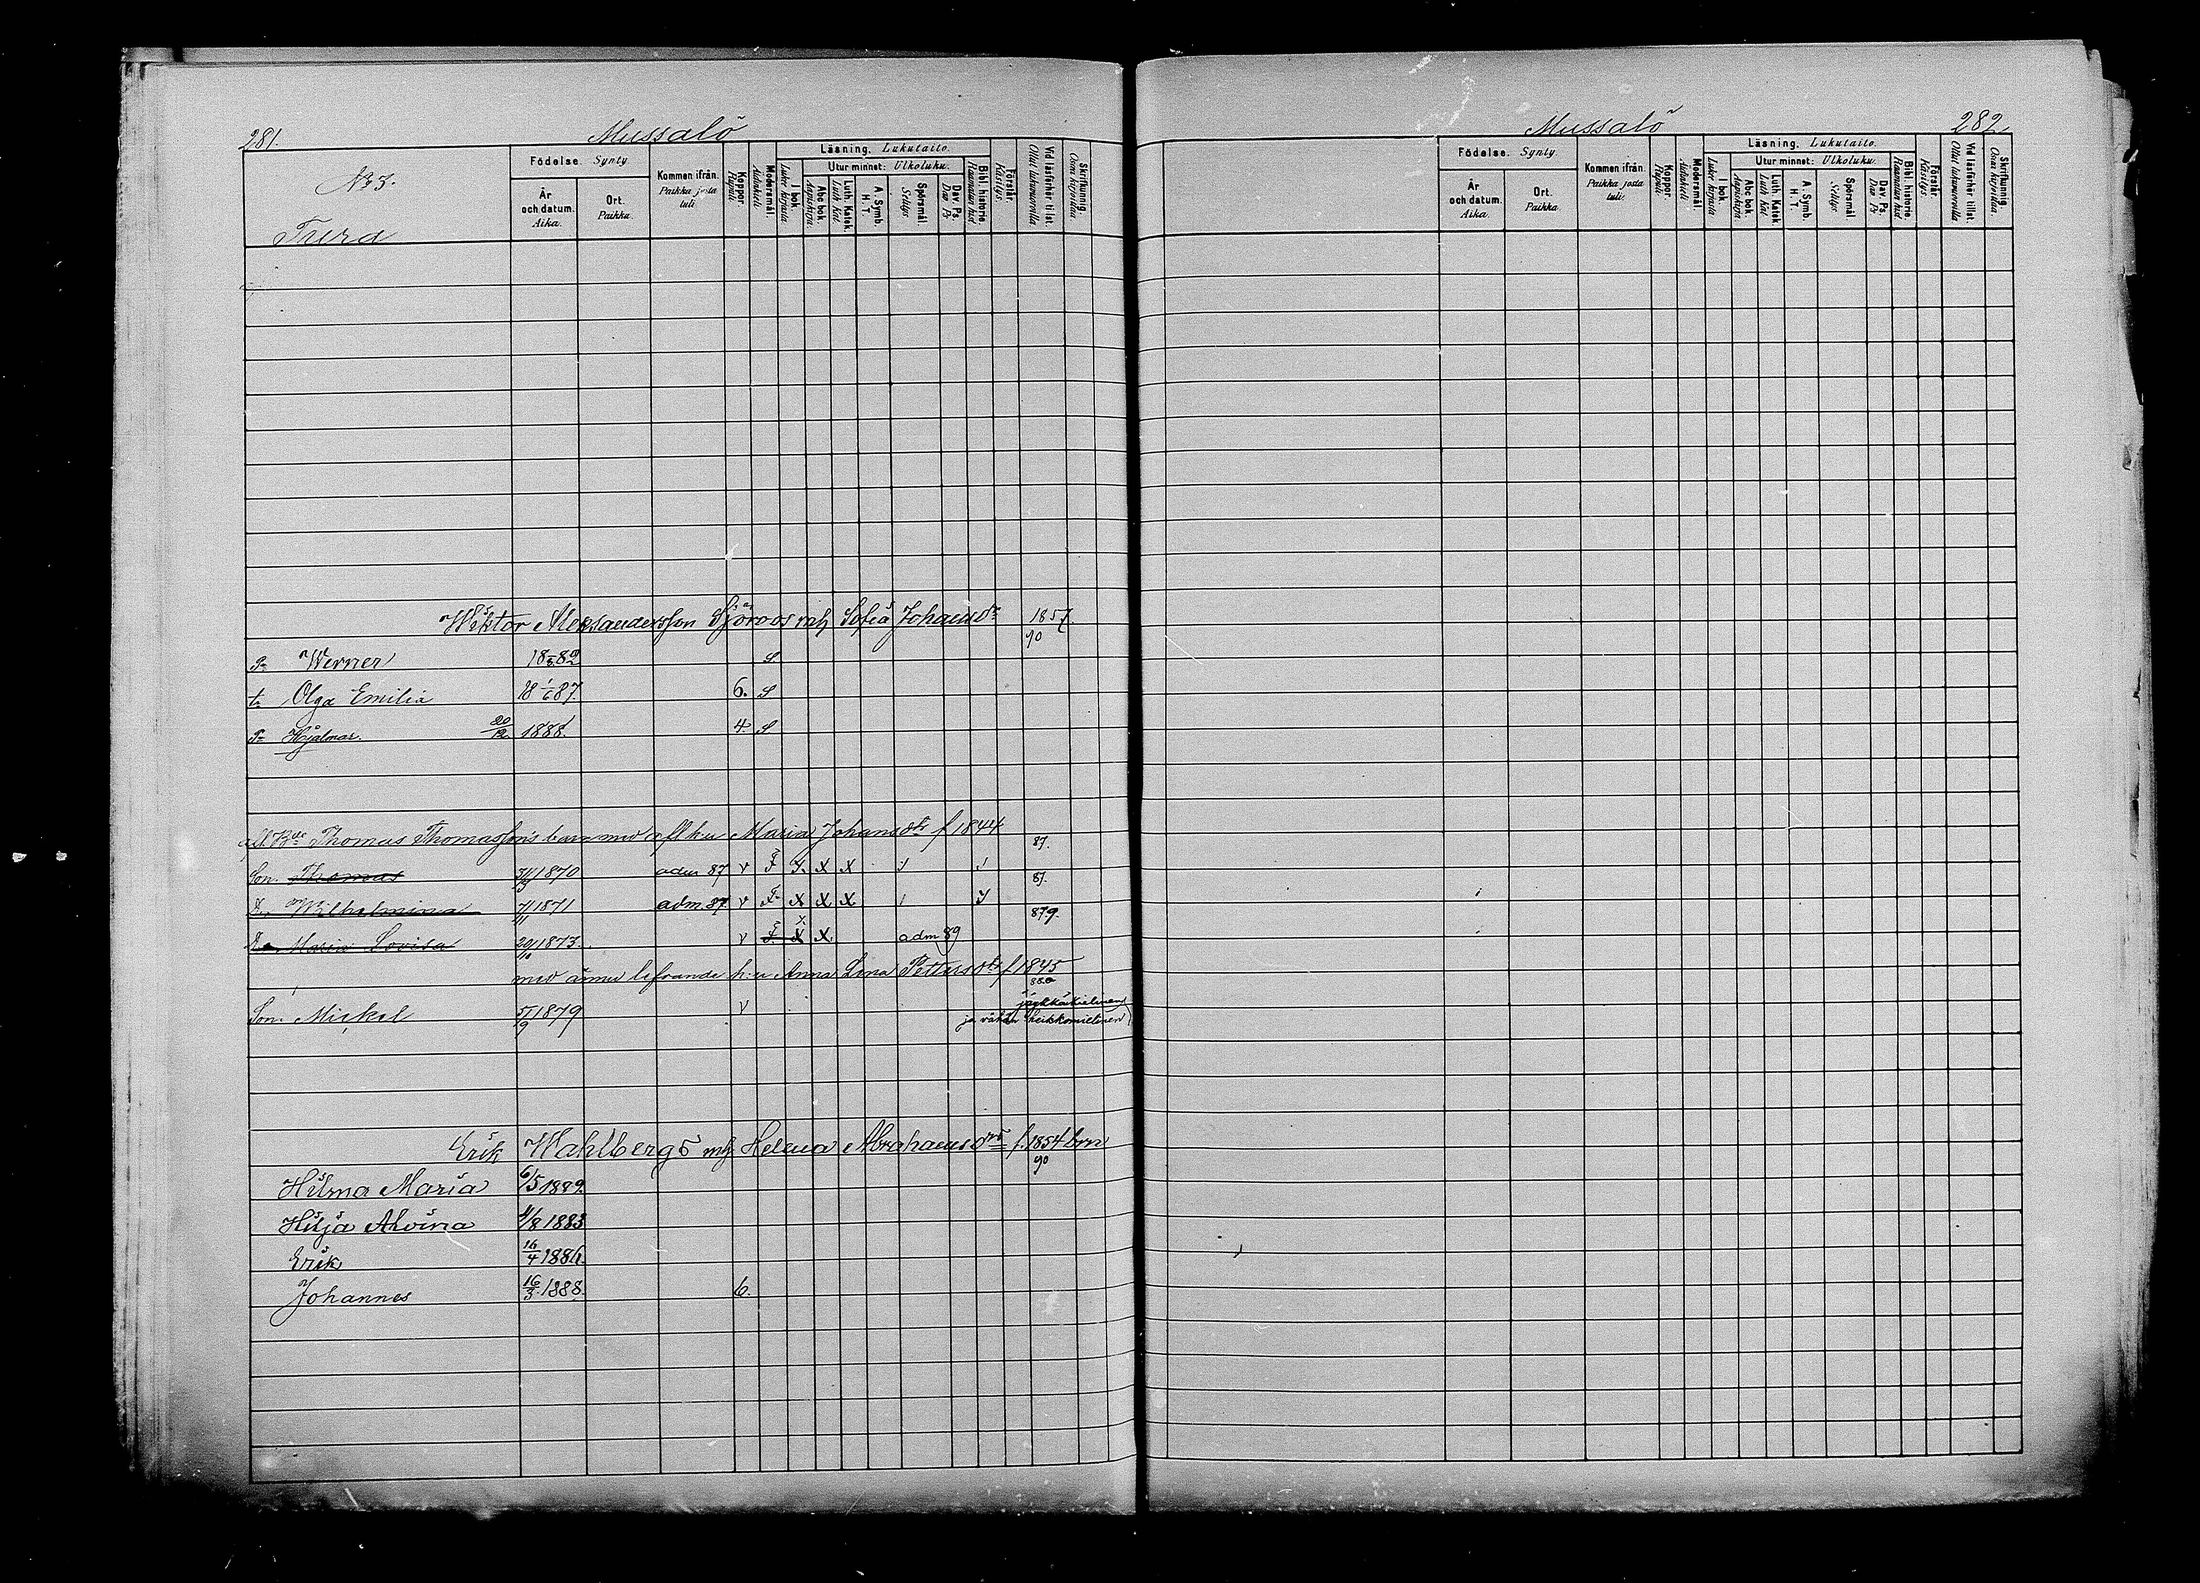 281. Mussalö
No 3.
Turd
Födelse. Synty.
År och datum. Aika.
Ort. Paikka.
Kommen ifrån. Paikka josta tuli
Koppor. Rupuli
Modersmål. Äidinkieli
Läsning. Lukutaito.
I bok. Lukee kirjasta
Utur minnet: Ulkoluku.
Abc bok. Aapiskirja.
Luth. Katek. Luth. Kat.
A. Symb. H. T.
Spörsmål. Selitys
Dav. Ps. Dav. Ps
Bibl. historie. Raamatun hist
Förstår. Käsitys.
Vid läsförhör tillst. Ollut lukuvuorolla
Skrifkunnig. Osaa kirjoittaa
Wiktor Aleksandersson Sjöroos mh Sofia Johansdr 1857
90
P. Werner 18 82 S
t. Olga Emilia 18 1/6 87. 6. S
P. Hjalmar. 20/12 1888. 4. S
afl. Thomas Thomassons barn med afl hu Maria Johansdr f 1844
87.
Son. Thomas 1870 adm 87 v X X
87.
Wilhelmina 1871 adm. 87 v X X X
879.
Maria Lovisa 29/10 1873. v X X adm 89
med ännu lefvande h:u Anna Lena Pettersdr f 1845
Son. Mickel 1879 v
ja vähän heikkomielinen
Erik Wahlbergs mh Helena Abrahamsdrs f. 1854 brn
90
Hilma Maria 6/5 1882.
Hilja Alvina 4/8 1883
Erik 16/4 1886.
Johannes 16/3 1888. 6.
Mussalö 282.
Födelse. Synty.
År och datum. Aika.
Ort. Paikka
Kommen ifrån. Paikka josta tuli.
Koppor. Rupuli
Modersmål. Äidinkieli
Läsning. Lukutaito.
I bok. Lukee kirjasta
Utur minnet: Ulkoluku.
Abc bok. Aapiskirja
Luth. Katek. Luth. Kat.
A. Symb. H. T.
Spörsmål Selitys.
Dav. Ps. Dav Ps
Bibl. historie. Raamatun hist
Förstår. Käsitys.
Vid läsförhör tillst. Ollut lukuvuorolla
Skrifkunnig. Osaa kirjoittaa